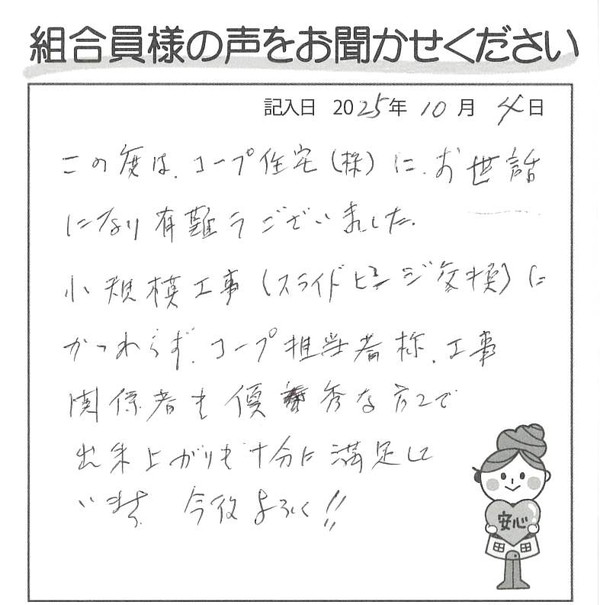 組合員様の声をお聞かせください
記入日 2025年 10月 4日
この度は、コープ住宅(株)に、お世話
になり有難うございました。
小規模工事(スライドヒンジ交換)に
かかわらず、コープ担当者様、工事
関係者も優秀な方々で
出来上がりも十分に満足して
います。今後よろしく!!
安心